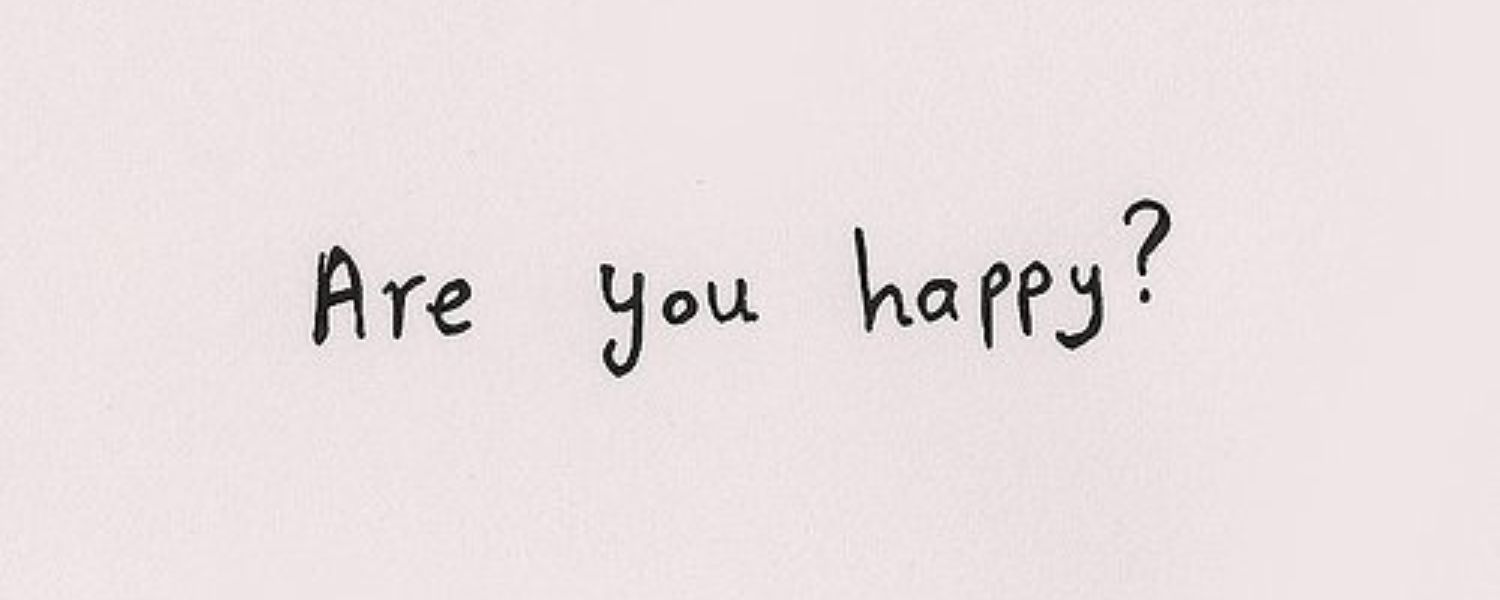 Are you happy?